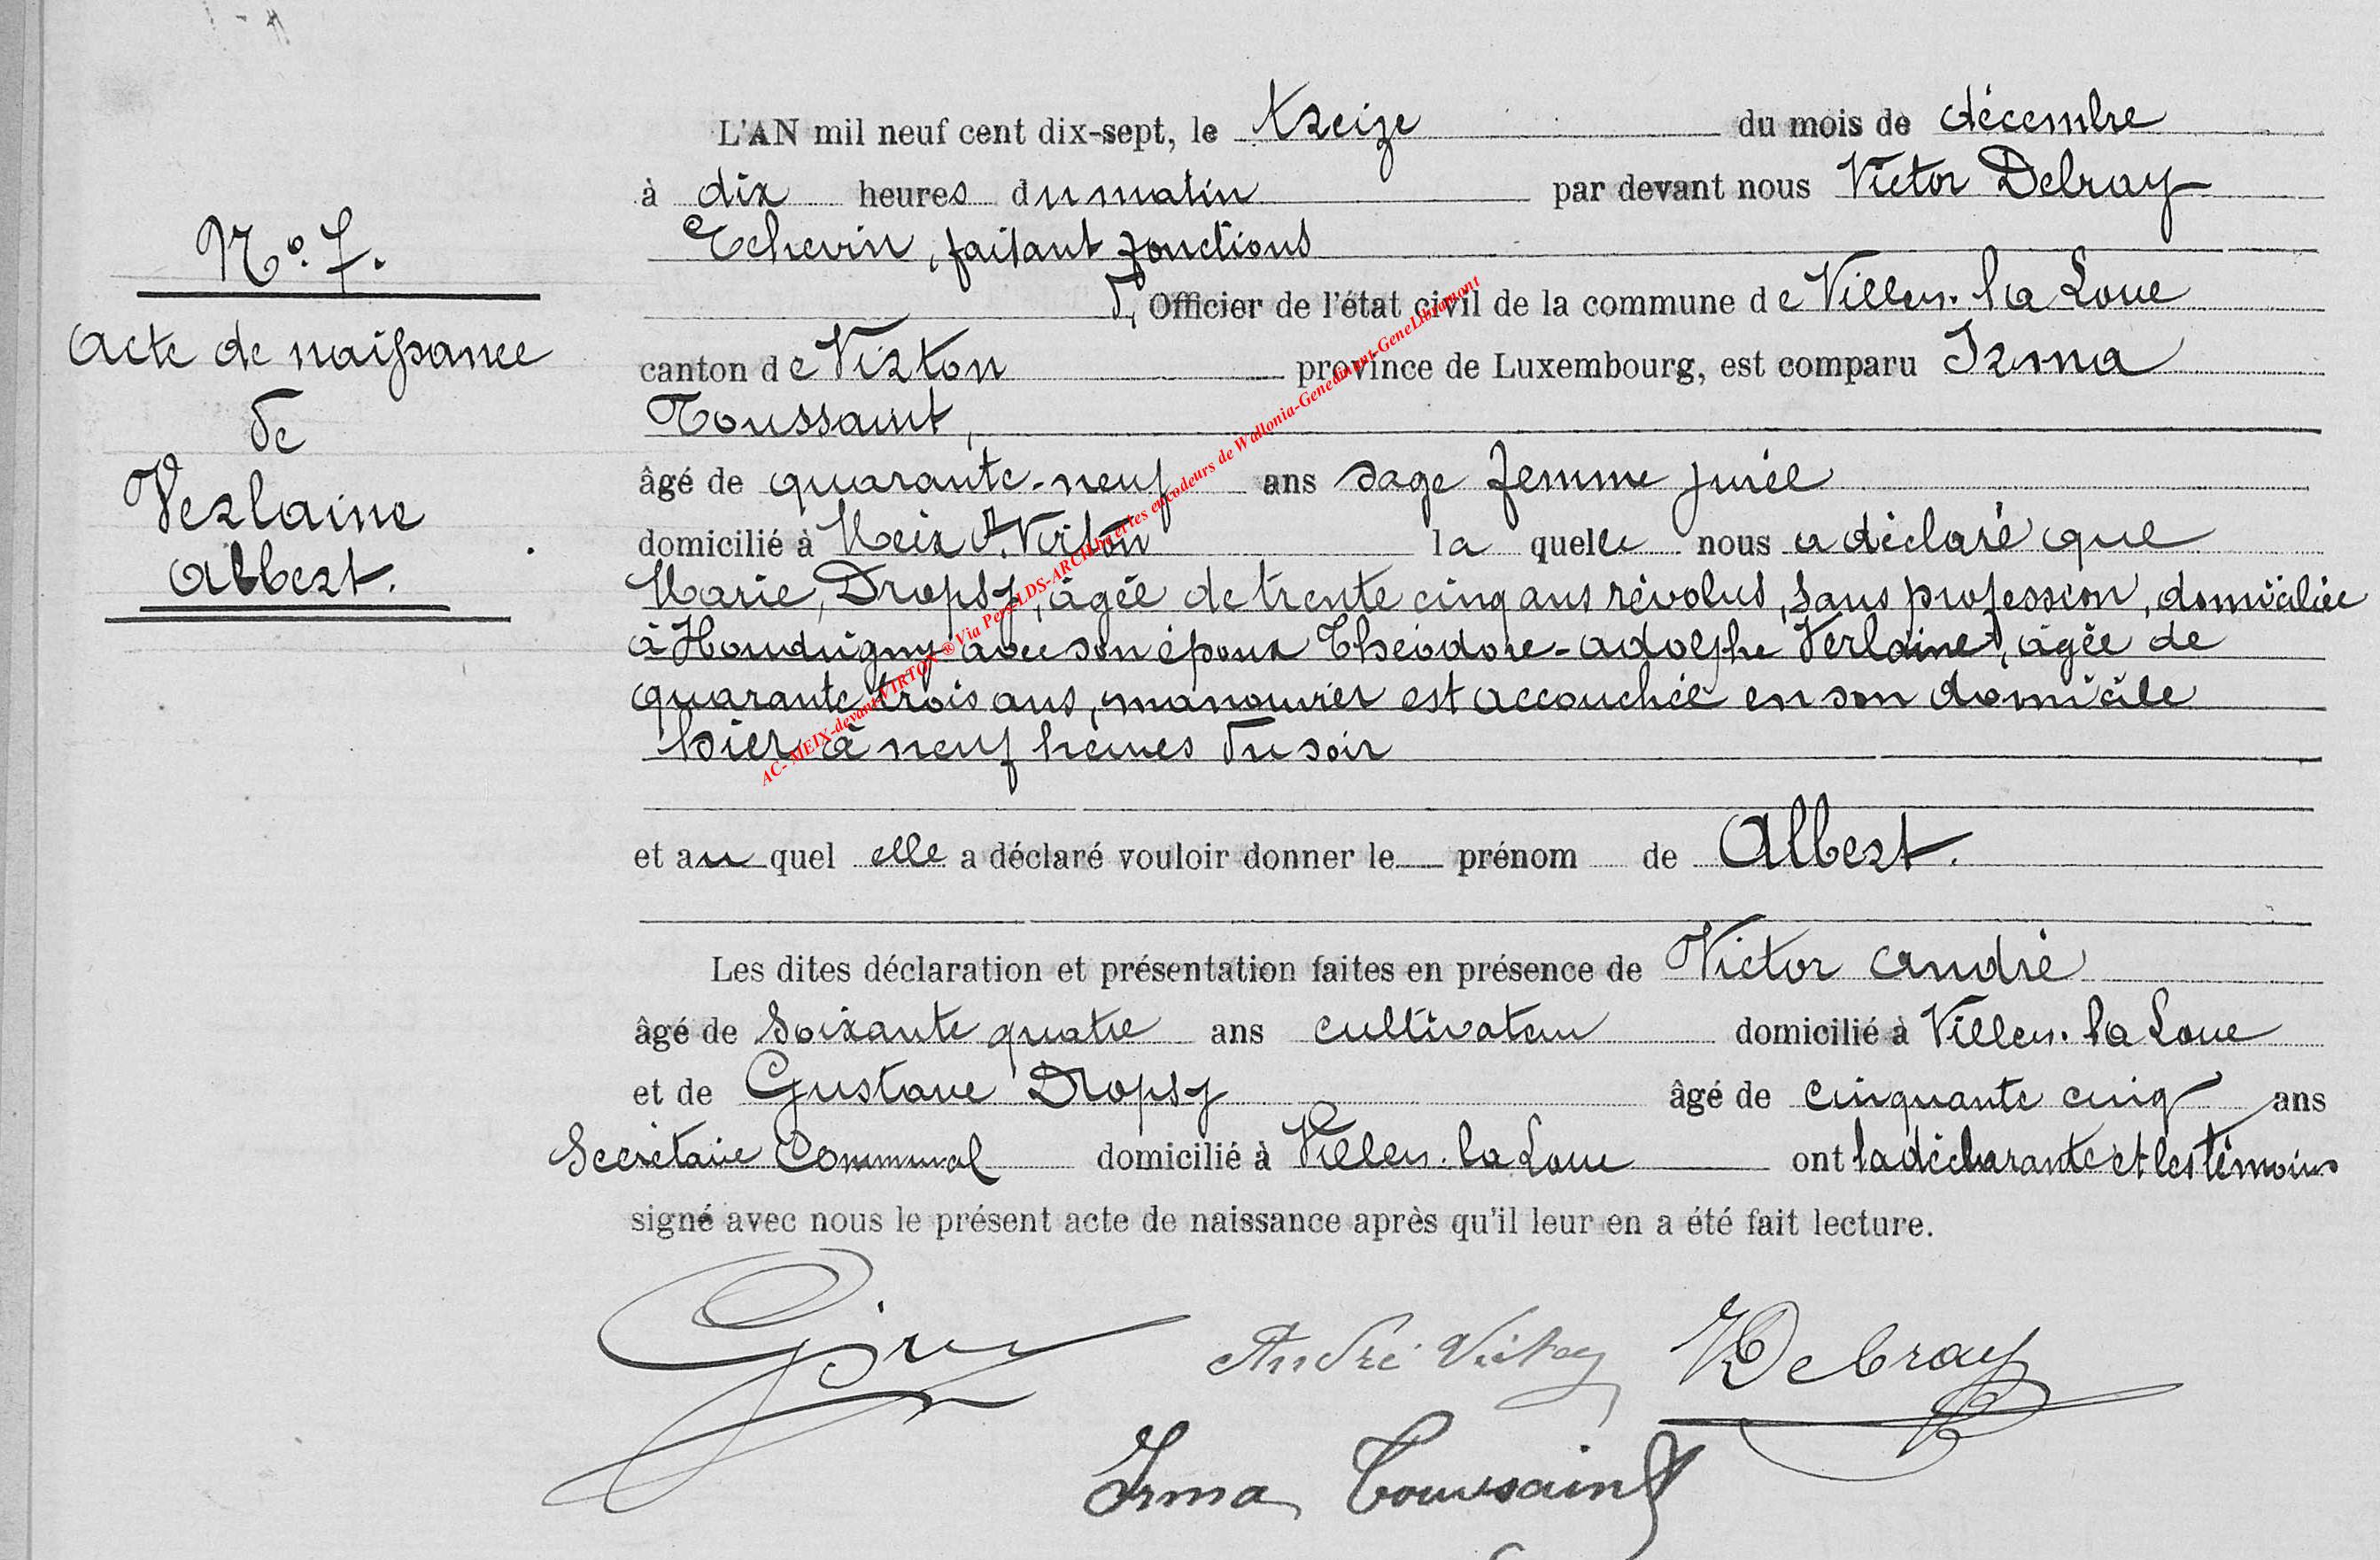 L'AN mil neuf cent dix-sept, le treize du mois de décembre
à dix heures du matin par devant nous Victor Debray
Echevin, faisant fonctions
d' Officier de l'état civil de la commune de Villers-la Loue
canton de Virton province de Luxembourg, est comparu Irma
Toussaint,
âgé de quarante-neuf ans sage femme jurée
domicilié à Meix dt Virton la quelle nous a déclaré que
Marie, Dropsy, âgée de trente cinq ans révolus, sans profession, domiciliée
à Houdrigny avec son époux Théodore-Adolphe Verlaine, âgée de
quarante trois ans, manouvrier est accouchée en son domicile
hier à neuf heures du soir
et au quel elle a déclaré vouloir donner le prénom de Albert.
Les dites déclaration et présentation faites en présence de Victor André
âgé de soixante quatre ans cultivateur domicilié à Villers-la Loue
et de Gustave Dropsy âgé de cinquante cinq ans
Secrétaire Communal domicilié à Villers-la Loue ont la déclarante et les témoins
signé avec nous le présent acte de naissance après qu'il leur en a été fait lecture.
N° 7.
Acte de naissance
de
Verlaine
Albert.
AC- MEIX-devant-VIRTON ® Via Pers-LDS-ARCH les encodeurs de Wallonia-Genedinant-GeneLibramont
André Victor
VDebray
Irma Toussaint